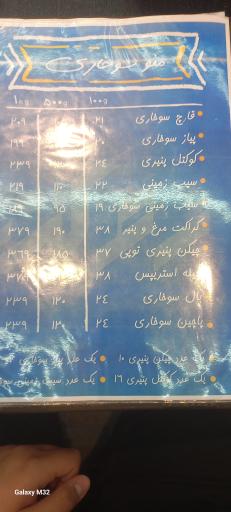 منو سوخاری
۱۰۰g ۵۰۰g ۱kg
قارچ سوخاری ۲۱ ۲۰۹
پیاز سوخاری ۲۰ ۱۹۹
کوکتل پنیری ۲۴ ۲۳۹
سیب زمینی ۲۲ ۱۱۰ ۲۱۹
سیب زمینی سوخاری ۱۹ ۹۵
کراکت مرغ و پنیر ۳۸ ۱۹۰ ۳۷۹
چیکن پنیری توپی ۳۷ ۱۸۵ ۳۶۹
فیله استریپس ۳۸
بال سوخاری ۲۴ ۱۲۰ ۲۳۹
پاچین سوخاری ۲۴ ۱۲۰ ۲۳۹
یک عدد چیکن پنیری ۱۰ یک عدد پیاز سوخاری
یک عدد کوکتل پنیری ۱۶ یک عدد سیب زمینی
Galaxy M32